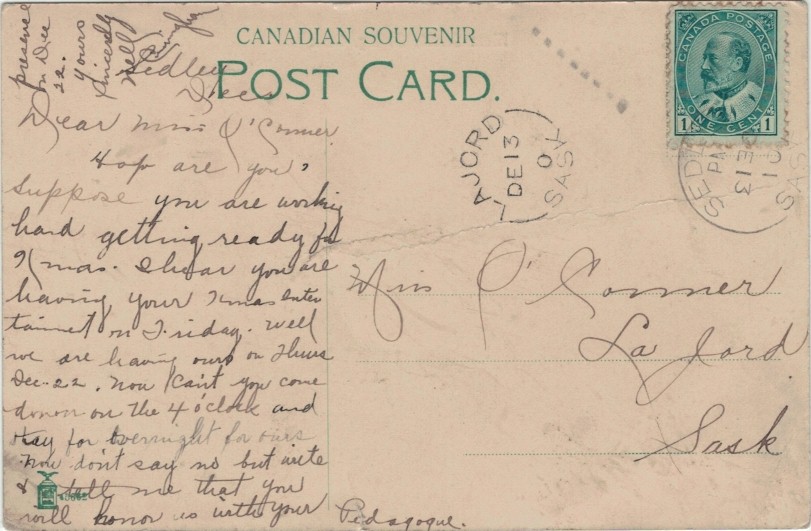 CANADIAN SOUVENIR
POST CARD.
CANADA POSTAGE
ONE CENT
1 1
LAJORD
DE 13
0
SASK
SED
PM
DE 13
01
SAS
Sedley
Dec
Dear Miss O'Conner
How are you,
suppose you are working
hard getting ready for
Xmas. I hear you are
having your Xmas enter
tainment on Friday. Well
we are having ours on Thurs
Dec. 22. Now Can't you come
down on the 4 o'clock and
stay for overnight for ours
Now don't say no but write
& tell me that you
will honor us with your
presence
on Dec
22.
Yours
Sincerely
Nell
Miss O'Conner
La Jord.
Sask
Pedagogue.